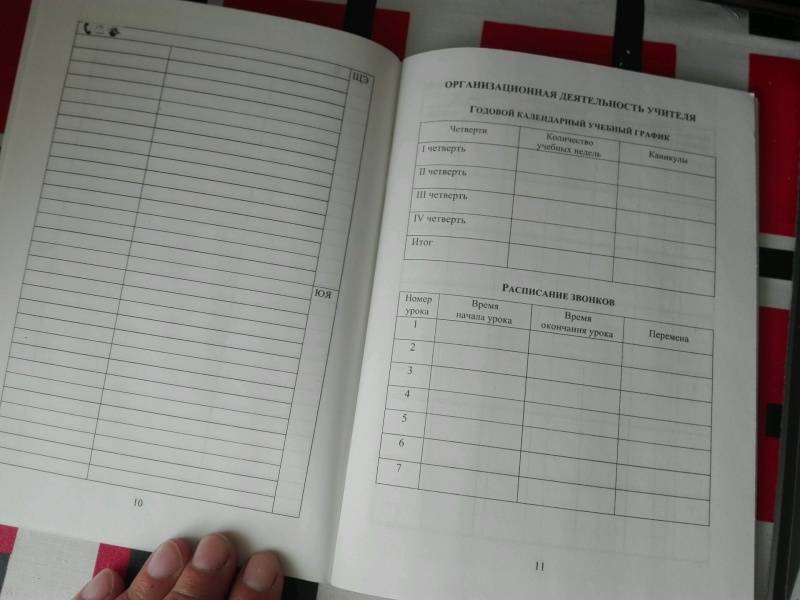 ЩЭ
ЮЯ
10
ОРГАНИЗАЦИОННАЯ ДЕЯТЕЛЬНОСТЬ УЧИТЕЛЯ
ГОДОВОЙ КАЛЕНДАРНЫЙ УЧЕБНЫЙ ГРАФИК
Четверти
Количество
учебных недель
Каникулы
I четверть
II четверть
III четверть
IV четверть
Итог
РАСПИСАНИЕ ЗВОНКОВ
Номер
урока
Время
начала урока
Время
окончания урока
Перемена
1
2
3
4
5
6
7
11